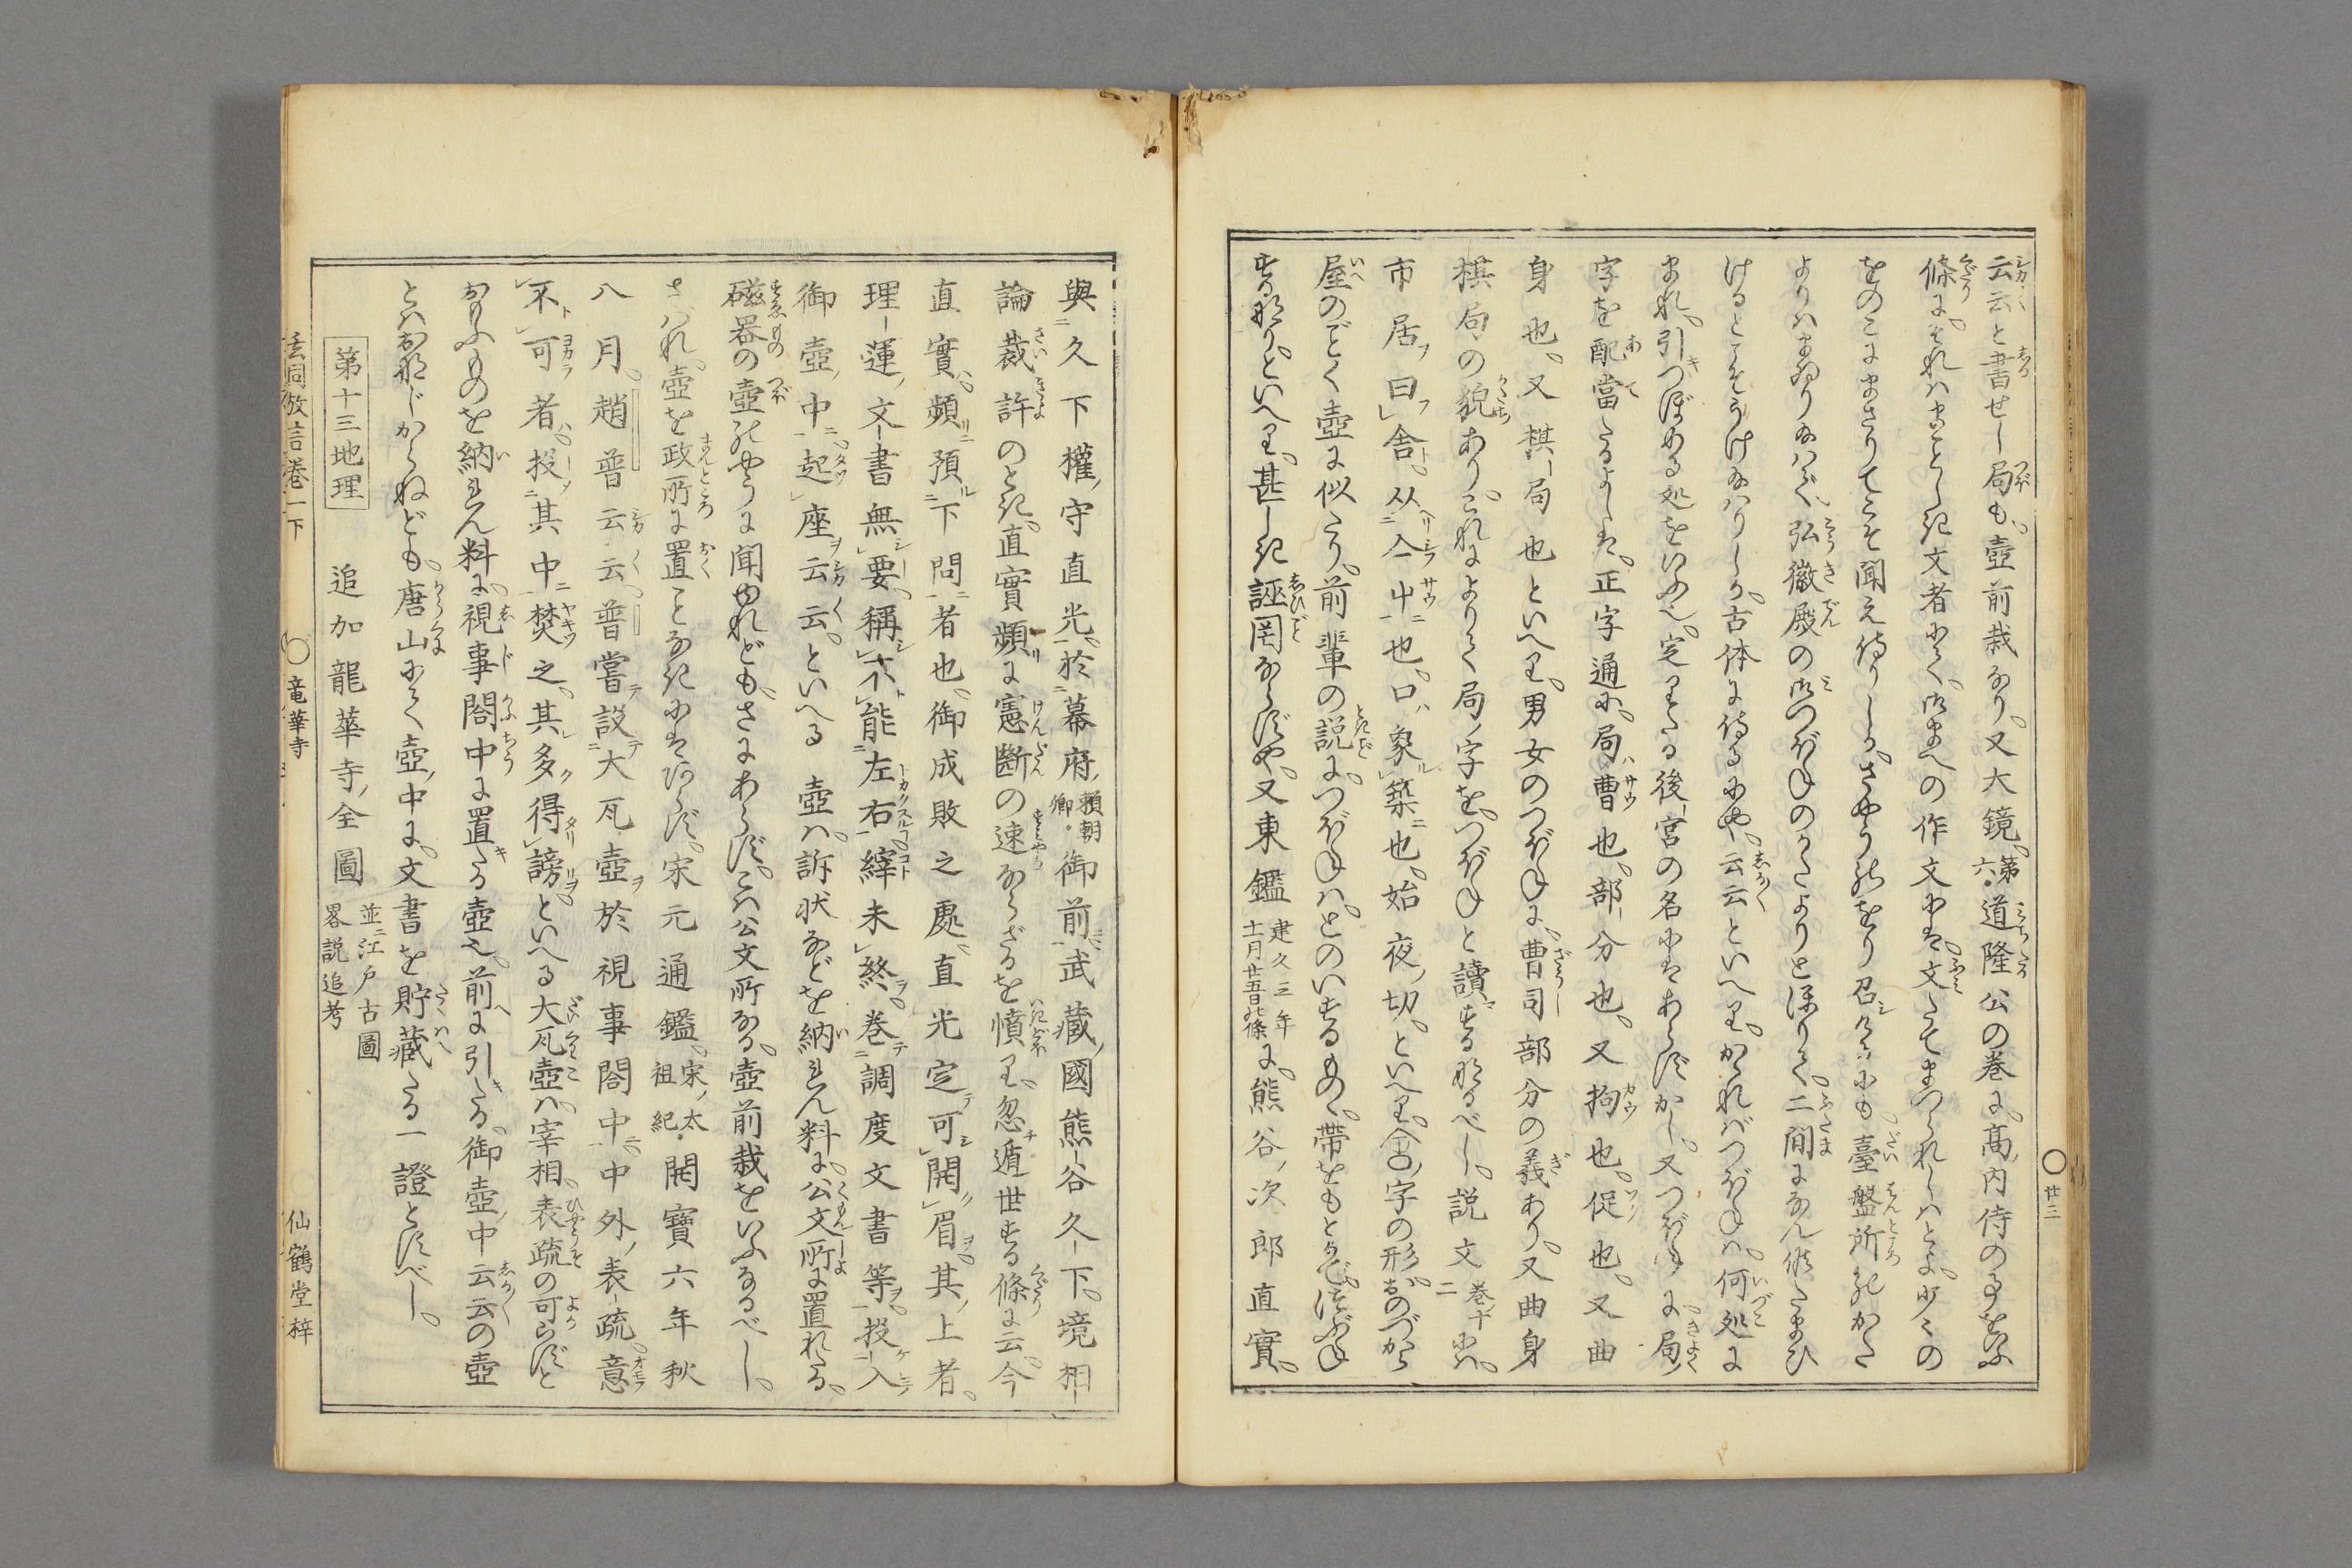 云云と書せし局も、壺前栽なり、又大鏡、第六道隆公の巻に、高内侍の事をいふ
條に、それはまことしき文者にて、御まへの作文には、文たてまつられしはとよ、少々の
をのこにまさりてこそ聞え侍りしか、さやうのをり召ありけるにも、臺盤所のかた
よりはまゐり給はで、弘徽殿の御つぼねのかたよりとほりて、二間になん候たまひ
けるとこそうけ給はりしか、古体に侍るにや、云云といへり、かかればつぼねは、何処に
まれ、引つぼめる処をいふ也、定りたる後宮の名にはあらずかし、又つぼねに局ノ
字を配當たるよしは、正字通に、局ハ曹也、部分也、又拘也、促也、又曲
身也、又棋局也といへり、男女のつぼねに、曹司部分の義あり、又曲身
棋局の貌あり、これによりて局ノ字を、つぼねと讀する也なるべし、説文巻十二には、
市居ヲ曰舎、从亼屮也、口ハ象築也、始夜ノ切、といへり、舎ノ字の形おのづから
屋のごとく壺に似たり、前輩の説に、つぼねは、とのいするもの、帯をもとかで、つぼね
するなり、といへり、甚しき誣罔ならずや、又東鑑建久三年十一月廿五日の條に、熊谷ノ次郎直實、
廿三
與久下權ノ守直光、於幕府ノ頼朝卿御前、武藏ノ國熊谷久下、境相
論裁許のとき、直實頻に憲斷の速ならざるを憤り、忽遁世する條に云、今
直實、頻預下問者也、御成敗之處、直光定可開眉、其ノ上者、
理運ノ文書無要、稱不能左右、縡未終、巻調度文書等、投入
御壺ノ中、起座云云、といへる　壺は、訴状などを納れん料に、公文所に置れたる、
磁器の壺のやうに聞ゆれども、さにあらず、こは公文所なる、壺前栽をいふなるべし、
さはれ、壺を政所に置ことなきにはあらず、宋元通鑑、宋ノ太祖紀開寶六年秋
八月、趙普云云、普嘗設大瓦壺於視事閤中、中外ノ表疏、意
不可者、投其中焚之、其多得謗、といへる大瓦壺は、宰相、表疏の可らずと
おもふものを納れん料に、視事閤中に置たる壺也、前に引たる、御壺ノ中云云の壺
とはおなじからねども、唐山にて壺ノ中に、文書を貯蔵たる一證とすべし、
第十三地理　追加龍華寺ノ全圖　並ニ江戸古圖畧説追考
玄同放言巻一下　竜華寺　仙鶴堂梓